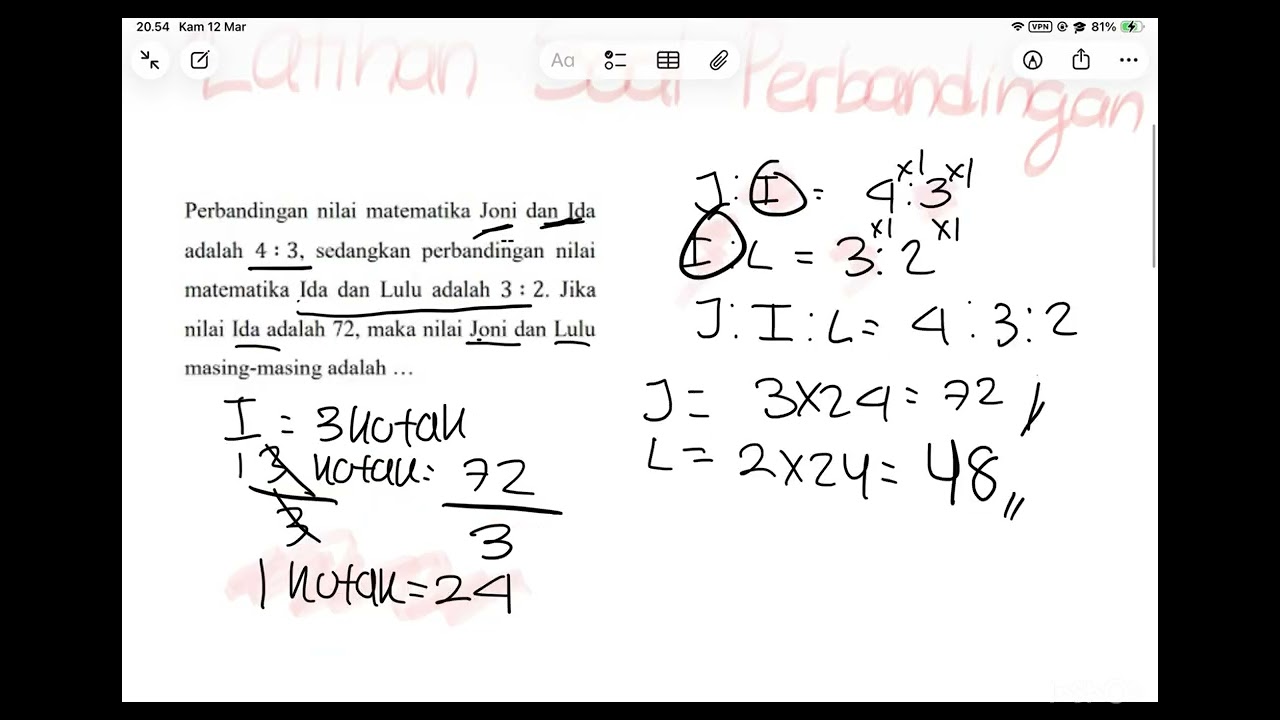 20.54 Kam 12 Mar
VPN 81%
Aa
Latihan Soal Perbandingan
Perbandingan nilai matematika Joni dan Ida
adalah 4 : 3, sedangkan perbandingan nilai
matematika Ida dan Lulu adalah 3 : 2. Jika
nilai Ida adalah 72, maka nilai Joni dan Lulu
masing-masing adalah …
I = 3 kotak
1 3 kotak = 72
3 3
1 kotak = 24
J : I = 4 x1 : 3 x1
I : L = 3 x1 : 2 x1
J : I : L = 4 : 3 : 2
J = 3x24 = 72 //
L = 2x24 = 48 //